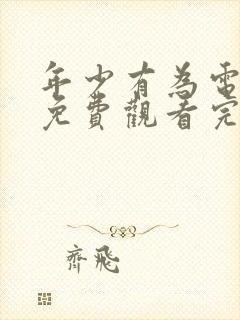 年少有為電
免費觀看完
齊飛